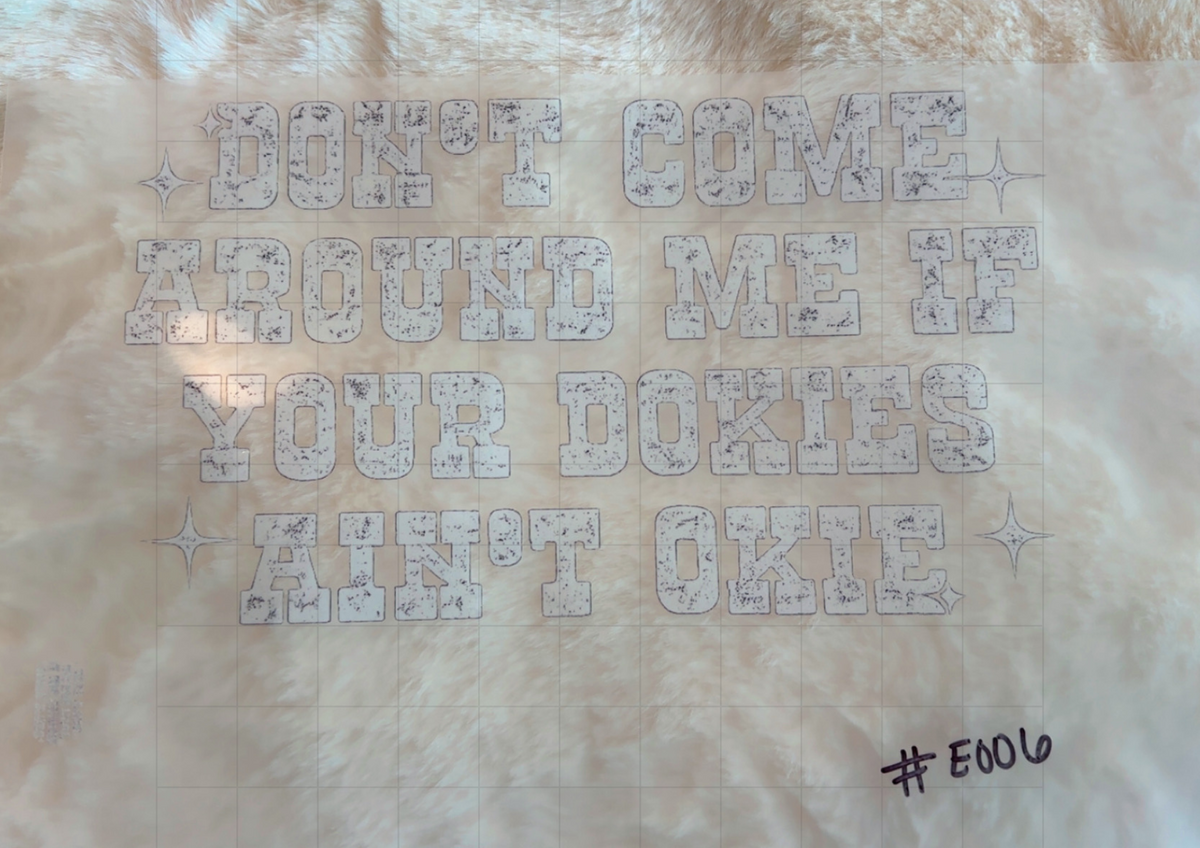 DON'T COME
AROUND ME IF
YOUR DOKIES
AIN'T OKIE
#E006